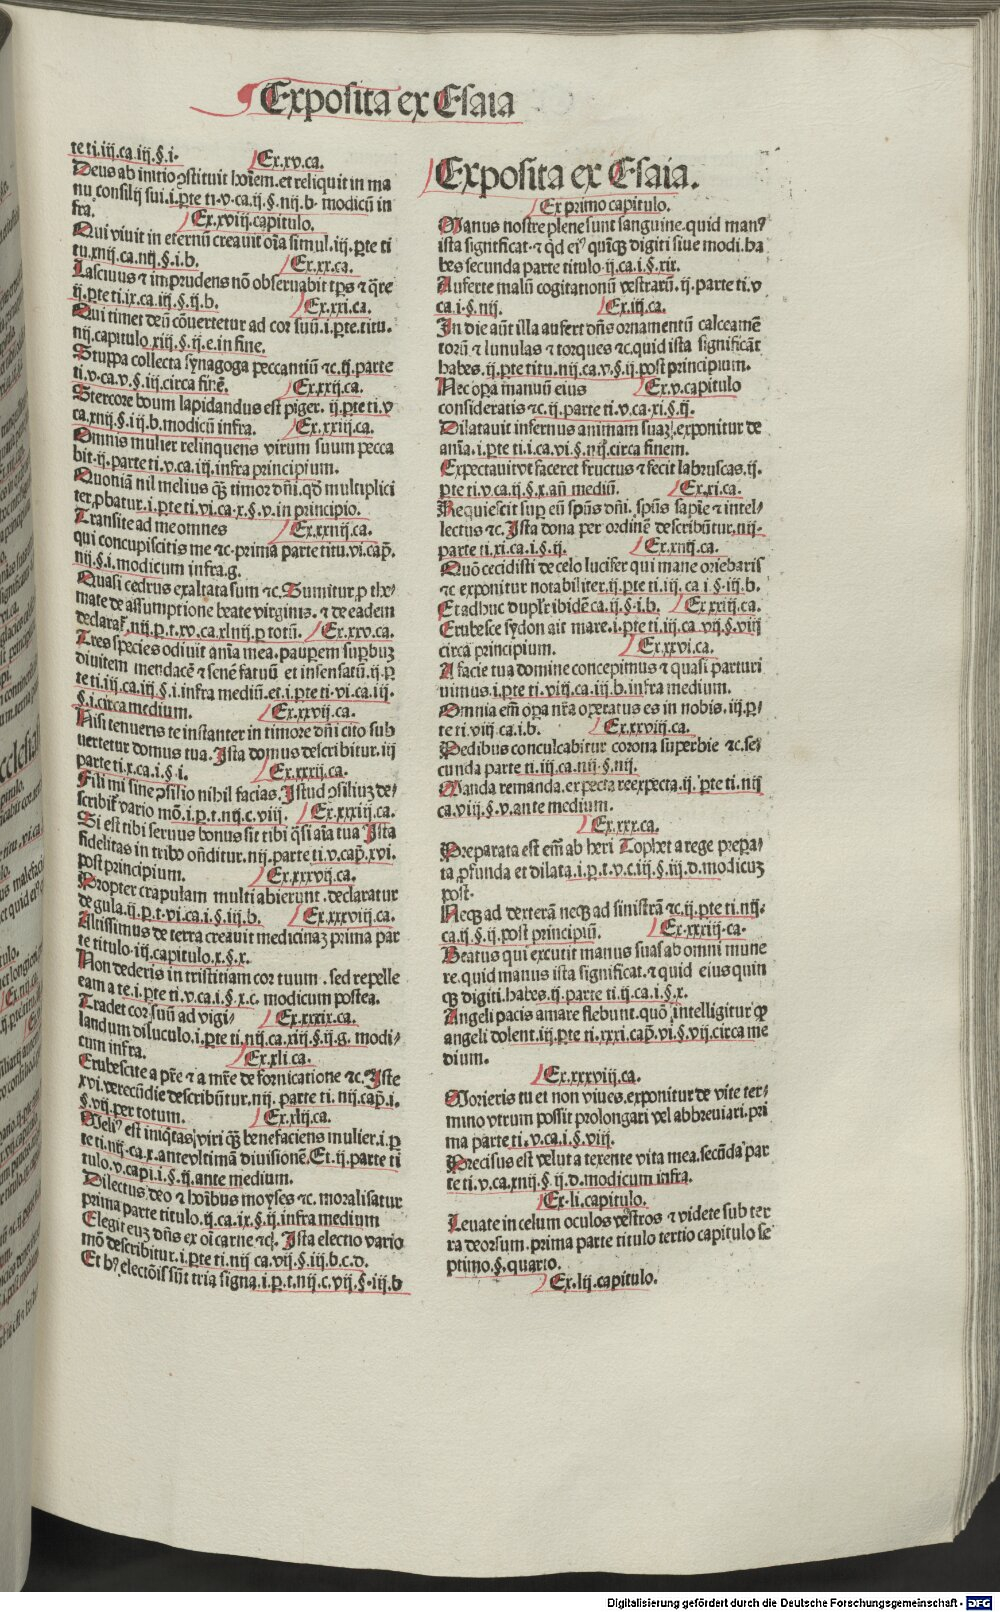 Exposita ex Esaia
te ti.iij.ca.iij.§.i.
Ex.xv.ca.
Deus ab initio ꝯstituit hoīem.et reliquit in ma
nu consilij sui.i.ꝑte ti.v.ca.ij.§.iiij.b. modicū in
fra.
Ex.xviij.capitulo.
Qui viuit in eternū creauit oīa simul.iij.ꝑte ti
tu.xiiij.ca.iiij.§.i.b.
Ex.xx.ca.
Lasciuus ⁊ imprudens nō obseruabit tꝑs ⁊ q̄re
ij.ꝑte ti.ix.ca.iij.§.ij.b.
Ex.xxi.ca.
Qui timet deū cōuertetur ad cor suū.i.ꝑte.titu.
iiij.capitulo.xiij.§.ij.e.in fine.
Stuppa collecta synagoga peccantiū ⁊c.ij.parte
ti.v.ca.v.§.iij.circa finē.
Ex.xxij.ca.
Stercore boum lapidandus est piger. ij.ꝑte ti.v
ca.xiij.§.iij.b.modicū infra.
Ex.xxiij.ca.
Omnis mulier relinquens virum suum pecca
bit.ij.parte ti.v.ca.iij.infra principium.
Quoniā nil melius q̄ꝫ timor dn̄i.qd̓ multiplici
ter.ꝓbatur.i.ꝑte ti.vi.ca.x.§.v.in principio.
Transite ad me omnes
Ex.xxiiij.ca.
qui concupiscitis me ⁊c.prima parte titu.vi.cap̄.
iiij.§.i.modicum infra.g.
Quasi cedrus exaltata sum ⁊c.Sumitur.ꝑ the⸗
mate de assumptione beate virginis. ⁊ de eadem
declaraṫ.iiij.ꝑ.t.xv.ca.xliiij.ꝑ totū.
Ex.xxv.ca.
Tres species odiuit anīa mea.pauꝑem suꝑbuꝫ
diuitem mendacē ⁊ senē fatuū et insensatū.ij.ꝑ
te ti.iij.ca.iij.§.i.infra mediū.et.i.ꝑte ti.vi.ca.iij.
§.i.circa medium.
Ex.xxvij.ca.
Nisi tenueris te instanter in timore dn̄i cito sub
uertetur domus tua.Ista domus describitur.iij
parte ti.x.ca.i.§.i.
Ex.xxxij.ca.
Fili mi sine ꝯsilio nihil facias.Istud ꝯsiliuꝫ de⸗
scribiṫ vario mō.i.ꝑ.t.iiij.c.viij.
Ex.xxxiij.ca.
Si est tibi seruus bonus sit tibi q̄si aīa tua Ista
fidelitas in tribꝰ on̄ditur.iiij.parte ti.v.cap̄.xvi.
post principium.
Ex.xxxvij.ca.
Propter crapulam multi abierunt.declaratur
de gula.ij.ꝑ.t.vi.ca.i.§.iij.b.
Ex.xxxviij.ca.
Altissimus de terra creauit medicinaꝫ prima par
te titulo.iij.capitulo.x.§.x.
Non dederis in tristitiam cor tuum . sed repelle
eam a te.i.ꝑte ti.v.ca.i.§.x.c. modicum postea.
Tradet cor suū ad vigi⸗
Ex.xxxix.ca.
landum diluculo.i.ꝑte ti.iiij.ca.xiij.§.ij.g. modi⸗
cum infra.
Ex.xli.ca.
Erubescite a pr̄e ⁊ a mr̄e de fornicatione ⁊c.Iste
xvi.verecūdie describūtur.iiij. parte ti. iiij.cap̄.i.
§.vij.per totum.
Ex.xlij.ca.
Meliꝰ est iniq̄tas viri q̄ꝫ benefaciens mulier.i.ꝑ
te ti.iiij.ca.x.ante vltimā diuisionē.Et.ij.parte ti
tulo.v.capi.i.§.ij.ante medium.
Dilectus deo ⁊ hoībus moyses ⁊c. moralisatur
prima parte titulo.ij.ca.ix.§.ij.infra medium
Elegit euꝫ dn̄s ex oī carne ⁊c. Ista electio vario
mō describitur.i.ꝑte ti.iiij.ca.vij.§.iij.b.c.d.
Et hꝰ electōis sūt tria signa.i.ꝑ.t.iiij.c.vij.§.iij.b
Exposita ex Esaia.
Ex primo capitulo.
Manus nostre plene sunt sanguine.quid manꝰ
ista significat.⁊ qd̓ eiꝰ quīqꝫ digiti siue modi.ha
bes secunda parte titulo.ij.ca.i.§.xix.
Auferte malū cogitationū vestrarū.ij.parte ti.v
ca.i.§.iiij.
Ex.iij.ca.
In die aūt illa aufert dn̄s ornamentū calceamē
torū ⁊ lunulas ⁊ torques ⁊c.quid ista significāt
habes.ij.ꝑte titu.iiij.ca.v.§.ij.post principium.
Nec oꝑa manuū eius
Ex.v.capitulo
consideratis ⁊c.ij.parte ti.v.ca.xi.§.ij.
Dilatauit infernus animam suaꝫ.exponitur de
anīa.i.ꝑte ti.i.ca.vi.§.iiij.circa finem.
Expectaui vt faceret fructus ⁊ fecit labruscas.ij.
ꝑte ti.v.ca.ij.§.x.an̄ mediū.
Ex.xi.ca.
Requiescit suꝑ eū spūs dn̄i.spūs sapīe ⁊ intel⸗
lectus ⁊c.Ista dona per ordinē describūtur.iiij.
parte ti.xi.ca.i.§.ij.
Ex.xiiij.ca.
Quō cecidisti de celo lucifer qui mane oriebaris
⁊c exponitur notabiliter.ij.ꝑte ti.iij.ca i.§.iij.b.
Et adhuc duplr̄ ibidē ca.ij.§.i.b.
Ex.xxiij.ca.
Erubesce sydon ait mare.i.ꝑte ti.iij.ca.vij.§.viij
circa principium.
Ex.xxvi.ca.
A facie tua domine concepimus ⁊ quasi parturi
uimus.i.ꝑte ti.viij.ca.iij.b.infra medium.
Omnia em̄ oꝑa nr̄a oꝑatus es in nobis.iij.ꝑ⸗
te ti.viij.ca.i.b.
Ex.xxviij.ca.
Pedibus conculcabitur corona superbie ⁊c.se⸗
cunda parte ti.iij.ca.iiij.§.iij.
Manda remanda.expecta reexpecta.ij.ꝑte ti.iiij
ca.viij.§.v.ante medium.
Ex.xxx.ca.
Preparata est em̄ ab heri Tophet a rege preꝑa⸗
ta.ꝓfunda et dilata.i.ꝑ.t.v.c.iij.§.iij.d.modicuꝫ
post.
Necqꝫ ad dexterā necqꝫ ad sinistrā ⁊c.ij.ꝑte ti.iiij.
ca.ij.§.ij.post principiū.
Ex.xxxiij.ca.
Beatus qui excutit manus suas ab omni mune
re.quid manus ista significat.⁊ quid eius quin
qꝫ digiti.habes.ij.parte ti.ij.ca.i.§.x.
Angeli pacis amare flebunt.quō intelligitur ꝙ
angeli dolent.iij.ꝑte ti.xxxi.cap̄.vi.§.vij.circa me
dium.
Ex.xxxviij.ca.
Morieris tu et non viues.exponitur de vite ter⸗
mino vtrum possit prolongari vel abbreuiari.pri
ma parte ti.v.ca.i.§.viij.
Precisus est velut a texente vita mea.secūda par
te ti.v.ca.xiiij.§.ij.d.modicum infra.
Ex.li.capitulo.
Leuate in celum oculos vestros ⁊ videte sub ter
ra deorsum.prima parte titulo tertio capitulo se
ptimo.§.quarto.
Ex.lij.capitulo.
Digitalisierung gefördert durch die Deutsche Forschungsgemeinschaft - DFG